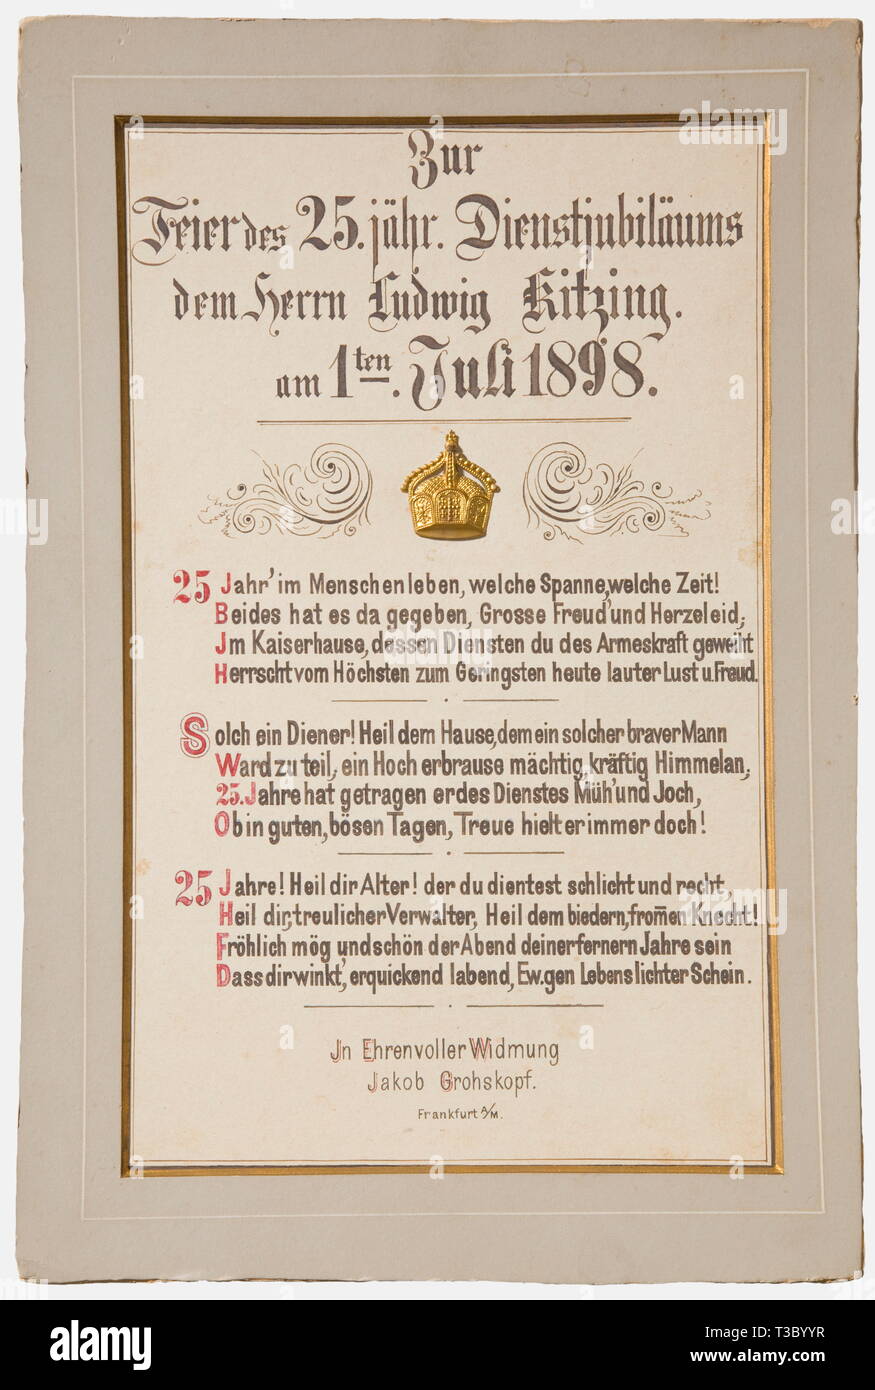 Zur
Feier des 25. jähr. Dienstjubiläums
dem Herrn Ludwig Kitzing.
am 1ten. Juli 1898.
25 Jahr' im Menschenleben, welche Spanne, welche Zeit!
Beides hat es da gegeben, Grosse Freud' und Herzeleid,
Jm Kaiserhause, dessen Diensten du des Armeskraft geweiht
Herrscht vom Höchsten zum Geringsten heute lauter Lust u. Freud.
Solch ein Diener! Heil dem Hause, dem ein solcher braver Mann
Ward zu teil, ein Hoch erbrause mächtig, kräftig Himmelan,
25. Jahre hat getragen er des Dienstes Müh' und Joch,
Ob in guten, bösen Tagen, Treue hielt er immer doch!
25 Jahre! Heil dir Alter! der du dientest schlicht und recht,
Heil dir, treulicher Verwalter, Heil dem biedern, from̄en Knecht!
Fröhlich mög und schön der Abend deiner fernern Jahre sein
Dass dir winkt', erquickend labend, Ew.gen Lebens lichter Schein.
Jn Ehrenvoller Widmung
Jakob Grohskopf.
Frankfurt A/M.
alamy
Image ID: T3BYYR
www.alamy.com